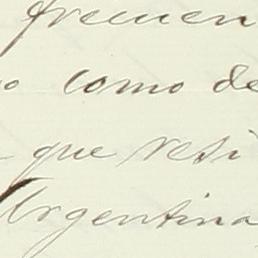 frecuen
o como de
que resi
Argentina